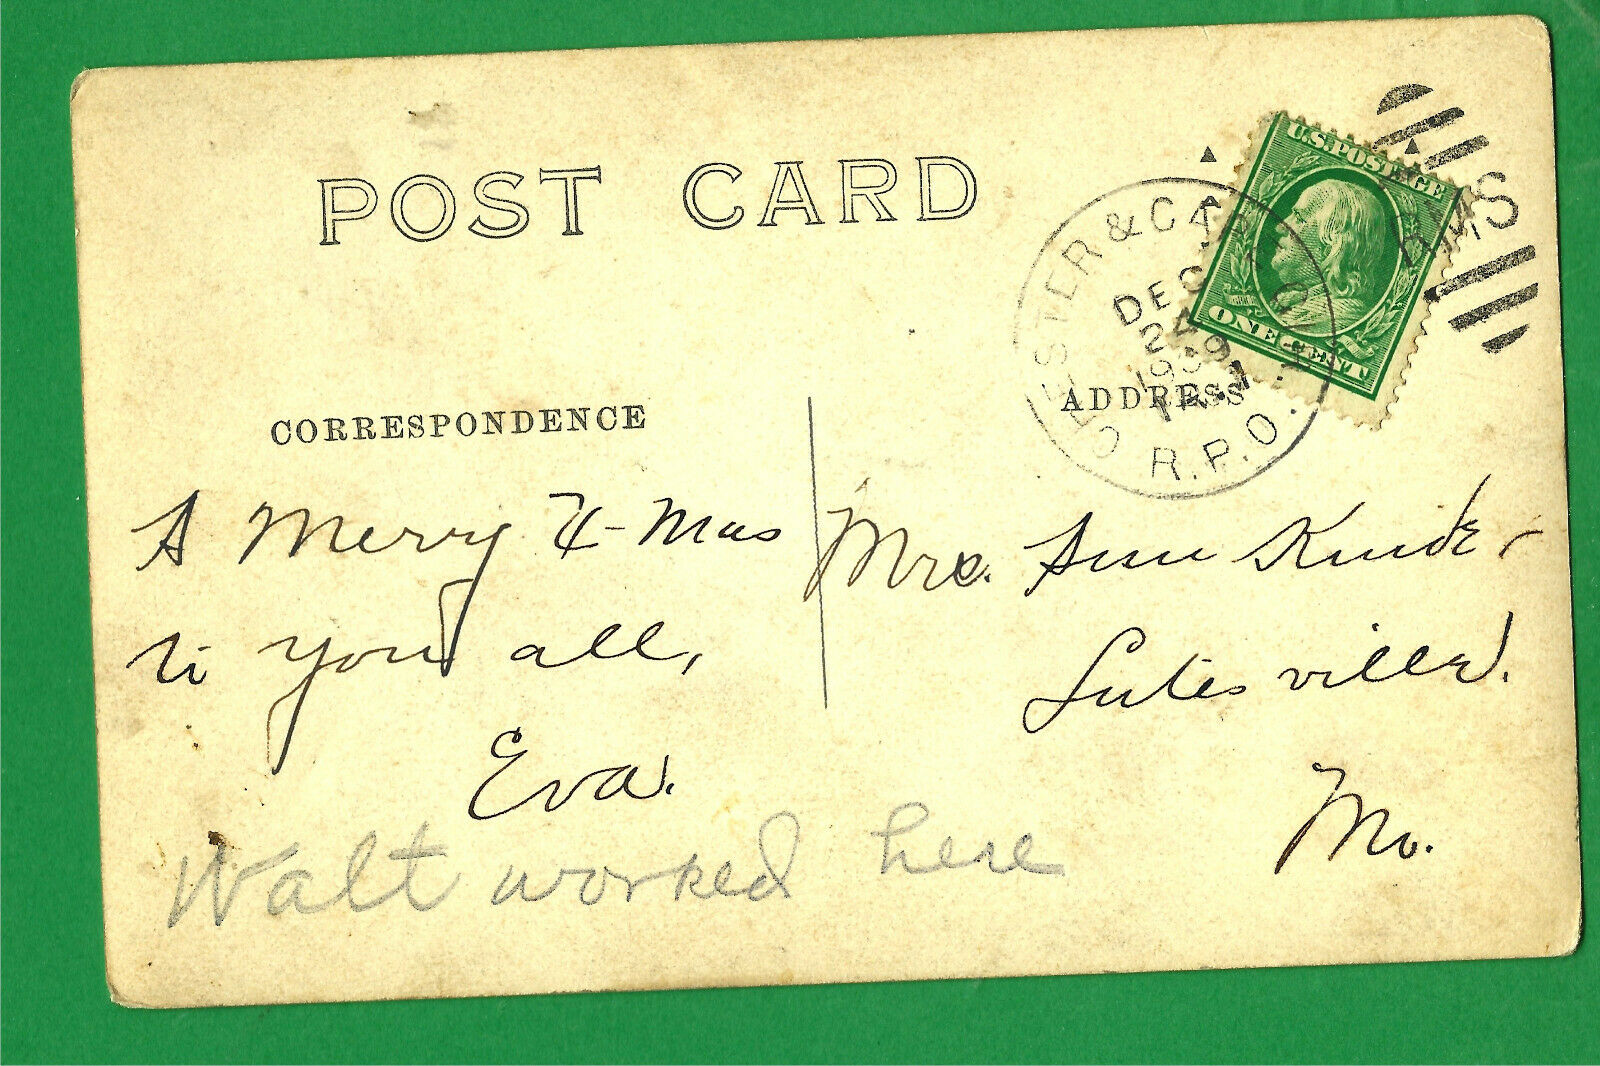 POST CARD
U.S.POSTAGE
ONE CENT
RMS
CHESTER & CAPE
DEC
24
1909
R.P.O.
CORRESPONDENCE
ADDRESS
A Merry X-Mas
to you all,
Eva.
Walt worked here
Mrs. Ann Kinder
Lutesville.
Mo.